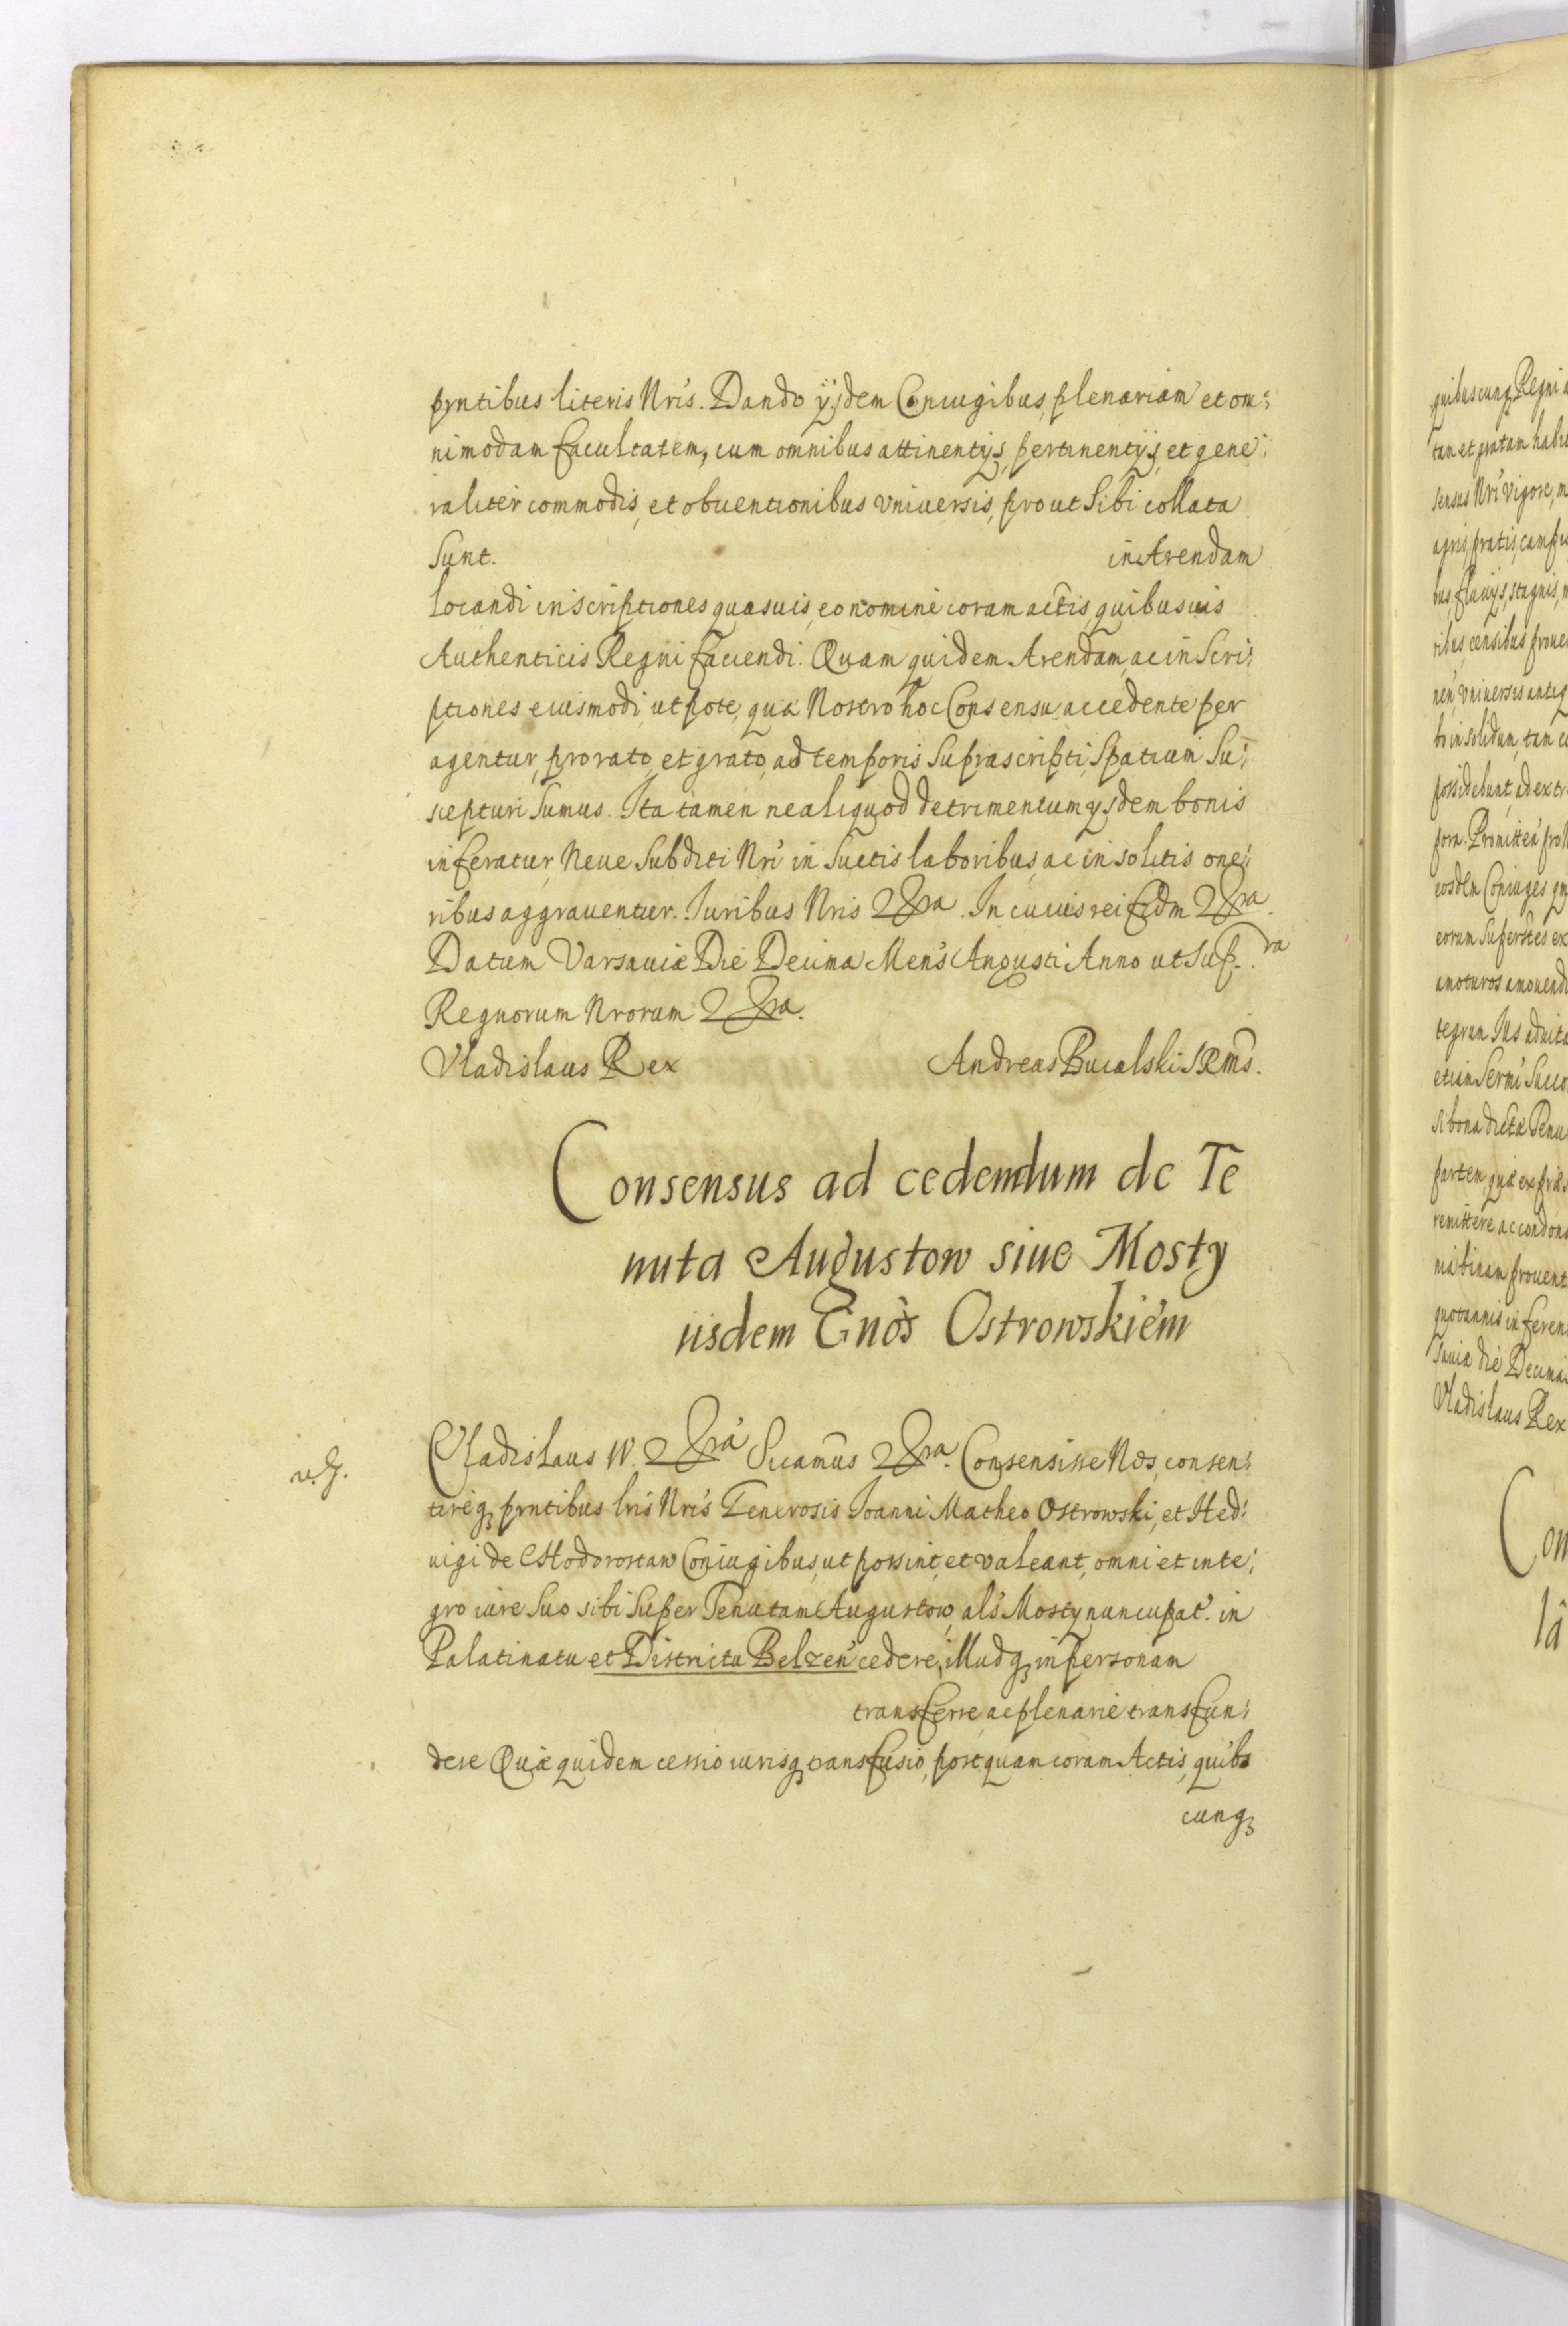 prntibus literis Nris. Dando ijsdem Coniugibus, plenariam et om:
nimodam facultatem, cum omnibus attinentijs, pertinentijs, et gene:
raliter commodis, et obuentionibus vniuersis, prout Sibi collata
sunt. in Arendam
locandi inscriptiones quasuis, eo nomine coram actis, quibusuis
Authenticis Regni faciendi. Quam quidem Arendam, ac inscri:
ptiones eiusmodi, utpote, quæ Nostro hoc Consensu accedente per
agentur, pro rato, et grato, ad temporis suprascripti, spatium su:
scepturi sumus. Ita tamen ne aliquod detrimentum ijsdem bonis
inferatur, Neue Subditi Nri in suetis laboribus, ac insolitis one:
ribus aggrauentur. Iuribus Nris &ra. In cuius rei fidm &ra.
Datum Varsauiæ Die Decima Mens Augusti Anno ut sup.ra
Regnorum Nrorum &ra.
Vladislaus Rex Andreas Bucalski SRMs.
Consensus ad cedendum de Te
nuta Augustow siue Mosty
iisdem Gnos Ostrowskiem
Vladislaus IV. &ra Sicamus &ra. Consensisse Nos, consen:
tireq prntibus lris Nris Generosis Joanni Matheo Ostrowski, et Hed:
uigi de Coniugibus, ut possint, et valeant, omni et inte:
gro iure suo sibi super Tenutam Augustow, als Mosty nuncupat. in
Palatinatu et Districtu Belzen cedere, illudq in personam
transferre, ac plenarie transfun:
dere Quæ quidem cessio iurisq transfusio, postquam coram Actis, quibs
cunq
quibuscunq Regni
tam et gratam
sensus Nri vigore,
agris, pratis,
fluuijs, stagnis,
censibus
vniuersis
in solidum, tam
possidebunt, ad
Promitten
eosdem Coniuges
eorum superstes ex
amoturos
Ius
etiam Sermi
si bona dicta
partem, quæ ex
remittere ac
quotannis
die Decima
Vladislaus Rex